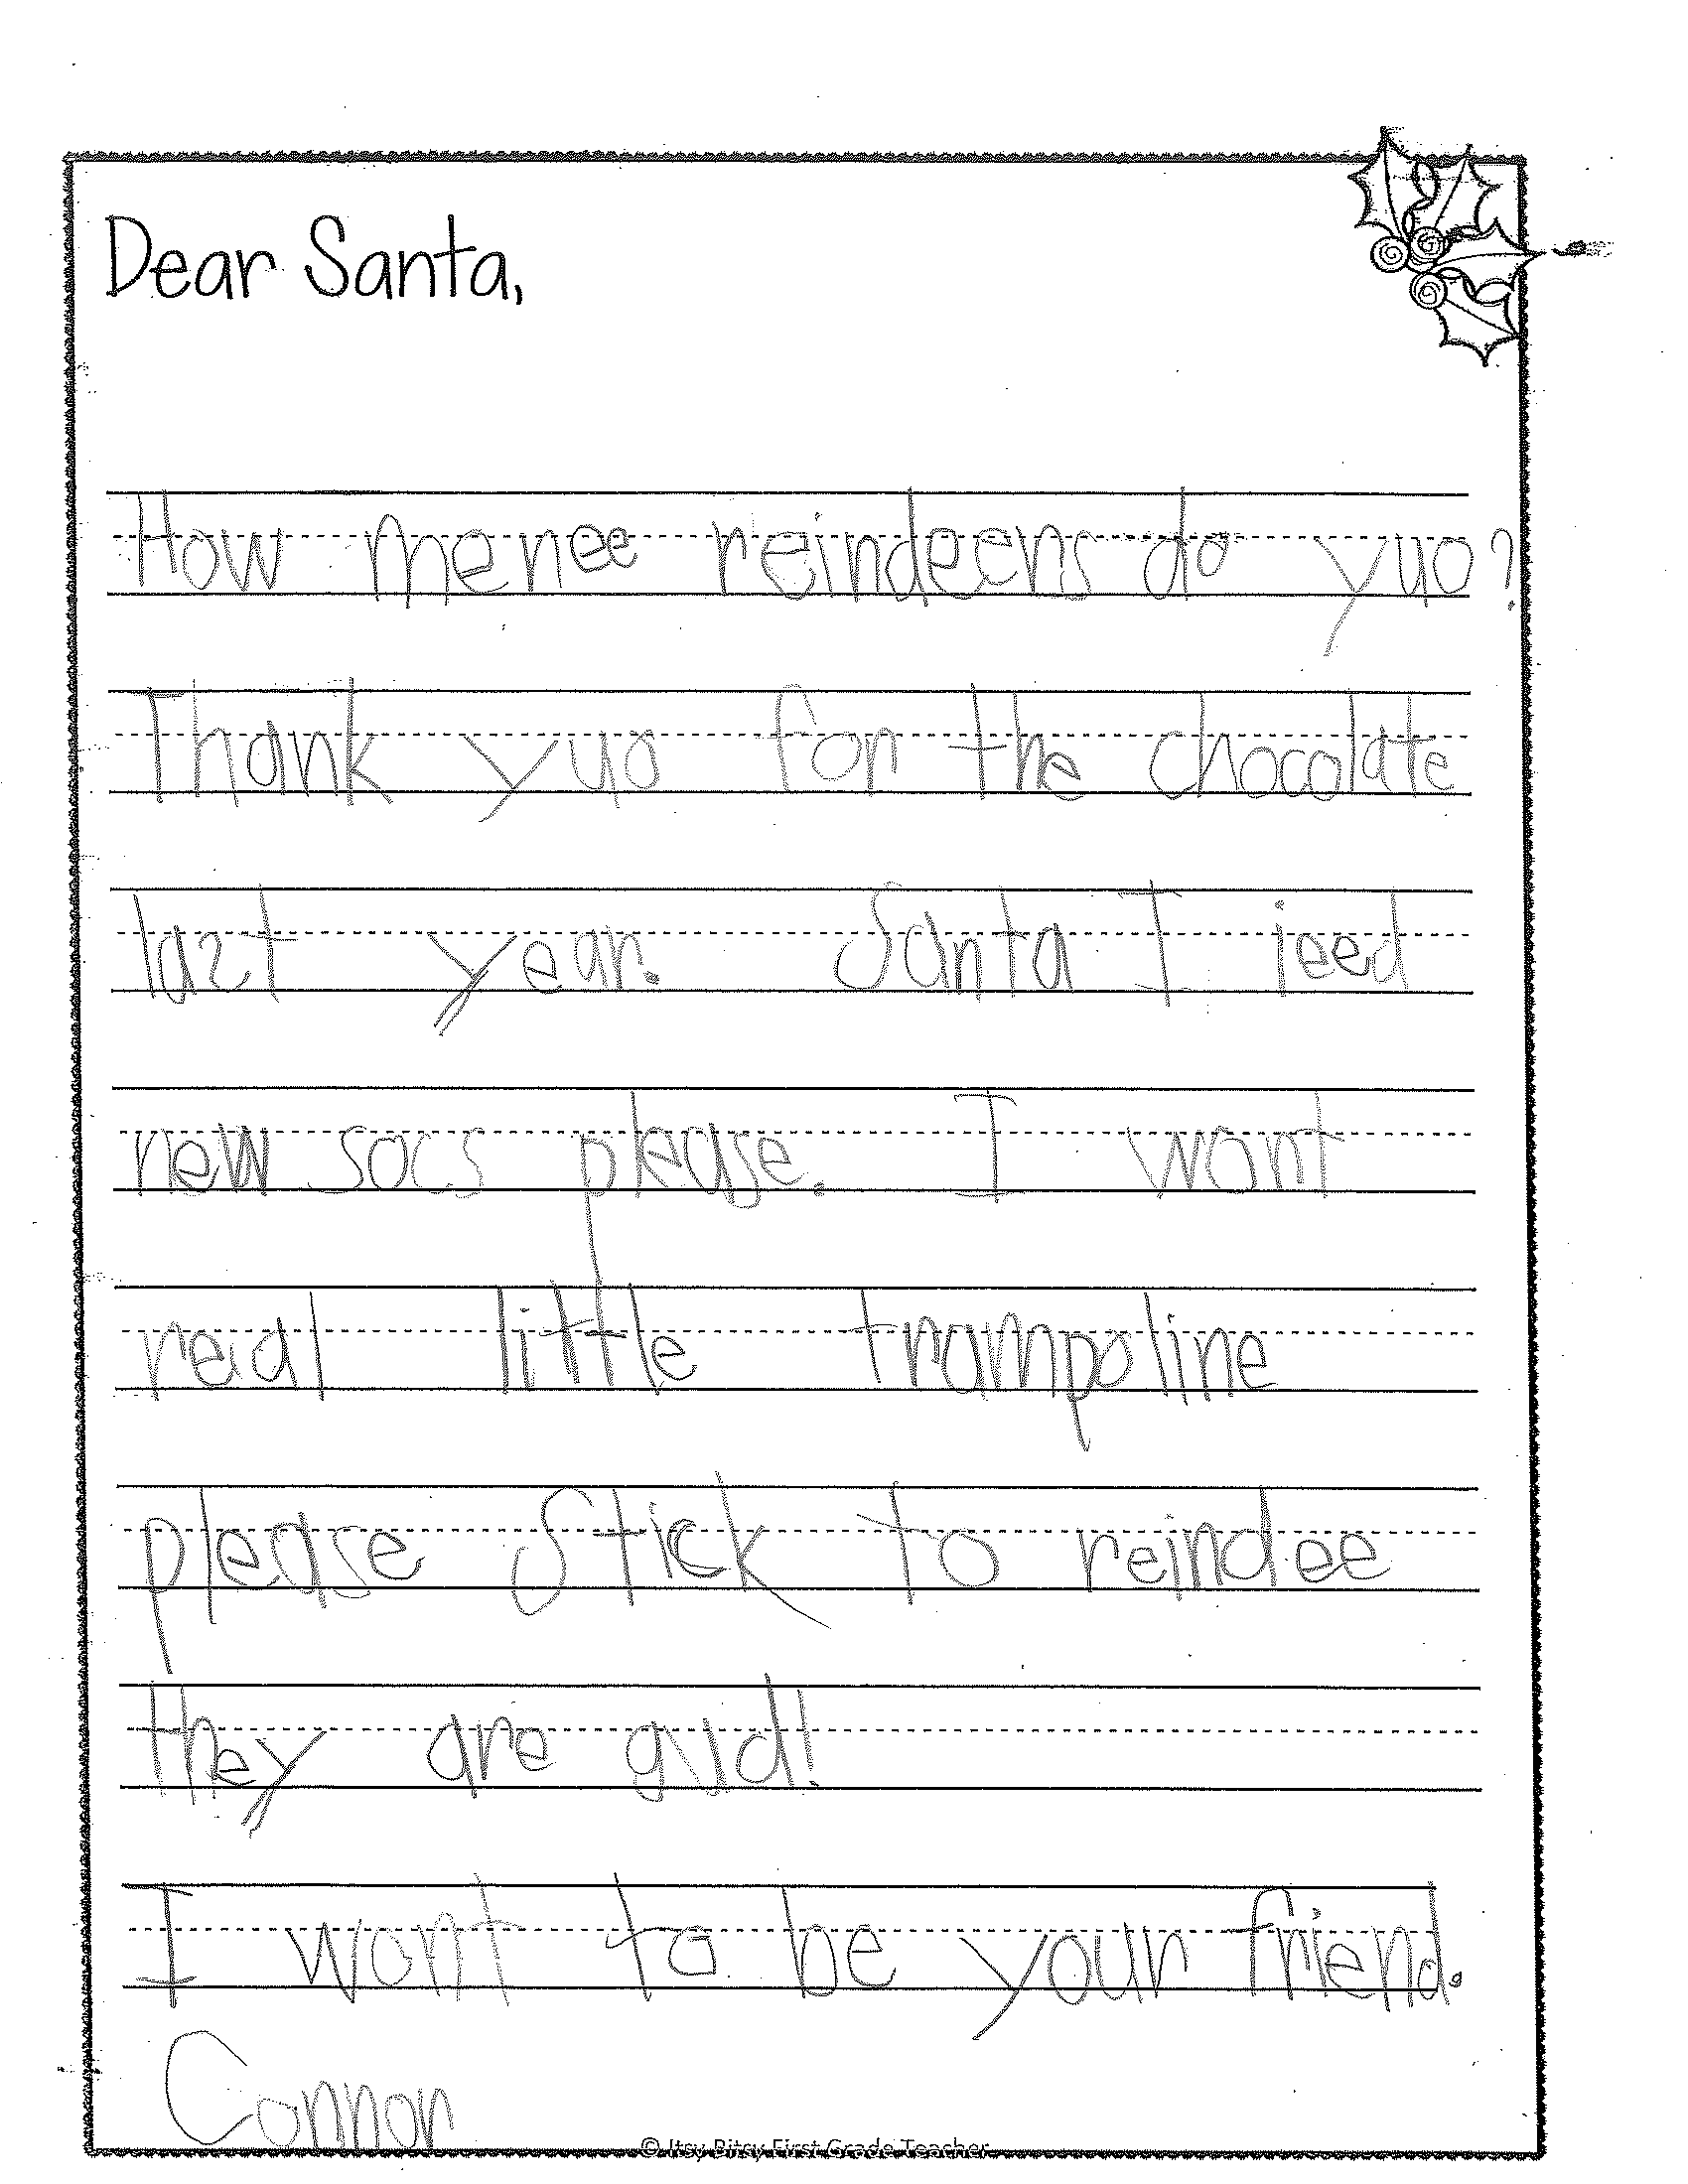 Dear Santa,
How menee reindeers do yuo?
Thank yuo for the chocolate
last year. Santa I ieed
new socs please. I wont
real little trampoline
please Stick to reindee
they are gud!
I wont to be your friend.
Connor
© Itsy Bitsy First Grade Teacher